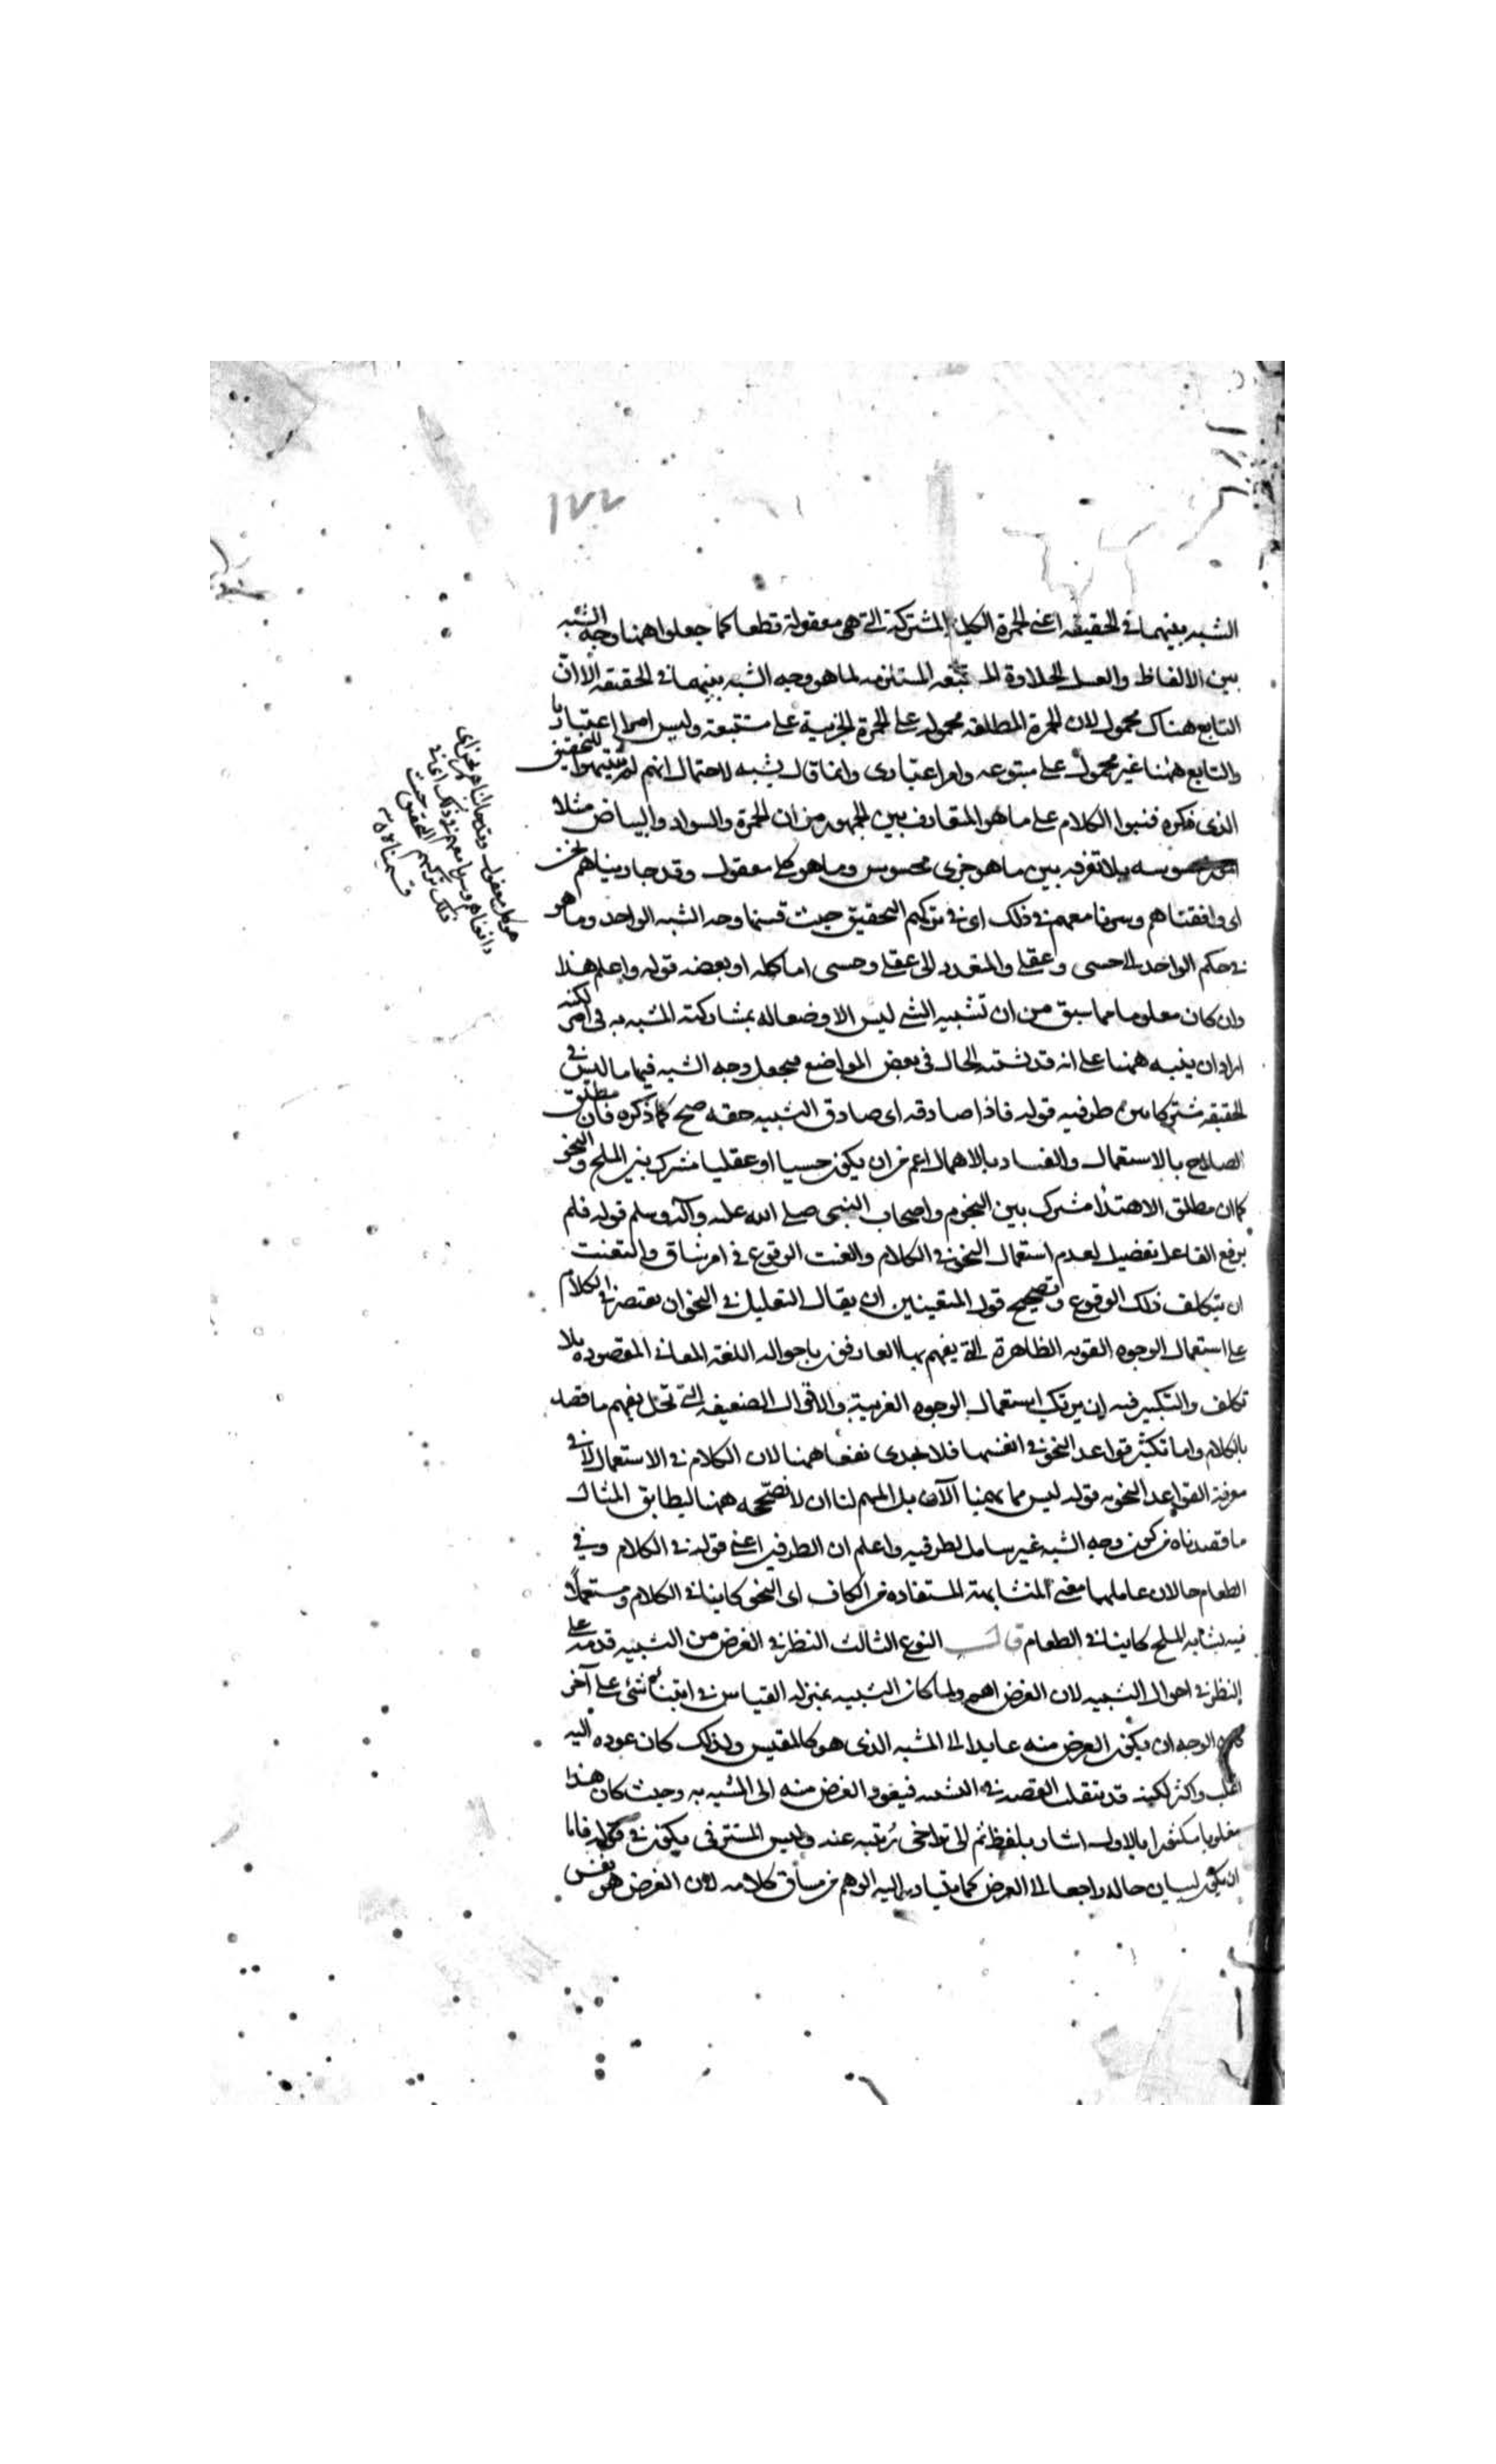 ١٧٧
الشبه بينهما في الحقيقه اعني الحمرة الكلية المشتركة التي هي معقولة قطعا كما جعلوا ههنا وجه الشبه
بين الالفاظ والعسل الحلاوة المستتبعه المستلزمه لما هو وجه الشبه بينهما في الحقيقه الا ان
التابع هناك محمول لان الحمرة المطلقه محموله على الحمرة الجزيية على مستتبعة وليس امرا اعتباريا
والتابع ههنا غير محمول على متبوعه وامر اعتبارى وانما قال يشبه لاحتمال انهم لم يتنبهوا للتحقيق
الذى ذكره فبنوا الكلام على ما هو المتعارف بين الجمهور من ان الحمرة والسواد والبياض مثلا
بلا تفرقه بين ما هو جزى محسوس وما هو كلى معقول وقد جاريناهم نحن
اى وافقناهم وسرنا معهم في ذلك اى في تركهم التحقيق حيث قسمنا وجه الشبه الواحد وما هو
في حكم الواحد الى حسى وعقلى والمتعدد الى عقلى وحسى اما كله او بعضه قوله واعلم هذا
وان كان معلوما مما سبق من ان تشبيه الشى ليس الا وضعا له بمشاركته المشبه به في امر لكنه
اراد ان ينبه ههنا على انه قد تشتبه الحال في بعض المواضع فيجعل وجه الشبه فيها ما ليس في
الحقيقه مشتركا بين طرفيه قوله فاذا صادفه اى صادف التشبيه حقه صح كما ذكره فان مطلق
الصلاح بالاستعمال والفساد بالاهمال اعم من ان يكون حسيا او عقليا مشترك بين الملح والنحو
كما ان مطلق الاهتدا مشترك بين النجوم واصحاب النبى صلى الله عليه وآله وسلم قوله فلم
يرفع الفاعل تفصيل لعدم استعمال النحو في الكلام والعنت الوقوع في امر شاق والتعنت
ان يتكلف ذلك الوقوع وتصحيح قول المتعنتين ان يقال التقليل في النحو ان يقتصر في الكلام
على استعمال الوجوه القويه الظاهرة التي يفهم بها العارفون باحوال اللغة المعاني المقصوده بلا
تكلف والتكثير فيه ان يرتكب استعمال الوجوه الغريبة والاقوال الضعيفه التي تخل بفهم ما قصد
بالكلام واما تكثير قواعد النحو في انفسها فلا يجدى نفعا ههنا لان الكلام في الاستعمال لا في
معرفة القواعد النحويه قوله ليس مما يهمنا الآن بل المهم لنا ان لا نصححه ههنا ليطابق المثال
ما قصدناه من كون وجه الشبه غير شامل لطرفيه واعلم ان الظرفين اعني قوله في الكلام وفي
الطعام حالان عاملهما معنى المشابهة المستفاده من الكاف اى النحو كاينا في الكلام ومستعملا
فيه يشابه الملح كاينا في الطعام قال النوع الثالث النظر في الغرض من التشبيه قدمه على
النظر في احوال التشبيه لان الغرض اهم ولما كان التشبيه بمنزله القياس في ابتناء شئ على آخر
كان الوجه ان يكون الغرض منه عايدا الى المشبه الذى هو كالمقيس ولذلك كان عوده اليه
اغلب واكثر لكنه قد تنقلب القصه في التشبيه فيعود الغرض منه الى المشبه به وحيث كان هذا
بالاول اشار بلفظ ثم الى تراخى رتبته عنه وليس المستتر في يكون في قوله فاما
ان يكون لبيان حاله راجعا الى الغرض كما يتبادر اليه الوهم من مساق كلامه لان الغرض هو نفس
هو كلى معقول وقد جاريناهم نحن اى
وافقناهم وسرنا معهم في ذلك اى في
تركهم التحقيق حيث
قسمنا